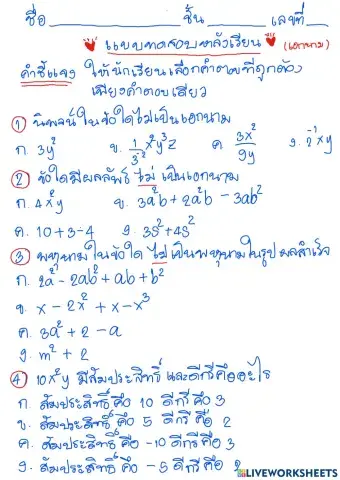 ชื่อ ชั้น เลขที่
แบบทดสอบหลังเรียน (เอกนาม)
คำชี้แจง ให้นักเรียนเลือกคำตอบที่ถูกต้อง
เพียงคำตอบเดียว
① นิพจน์ในข้อใดไม่เป็นเอกนาม
ก. 3y² ข. 1/3⁻² x²y³z ค. 3x²/9y ง. 2⁻¹xy
② ข้อใดมีผลลัพธ์ ไม่ เป็นเอกนาม
ก. 4x²y ข. 3a²b + 2a²b - 3ab²
ค. 10 + 3 - 4 ง. 3s² + 4s²
③ พหุนามในข้อใด ไม่ เป็นพหุนามในรูปผลสำเร็จ
ก. 2a² - 2ab² + ab + b²
ข. x - 2x² + x - x³
ค. 3a² + 2 - a
ง. m² + 2
④ 10x²y มีสัมประสิทธิ์ และดีกรีคืออะไร
ก. สัมประสิทธิ์คือ 10 ดีกรีคือ 3
ข. สัมประสิทธิ์คือ 5 ดีกรี คือ 2
ค. สัมประสิทธิ์คือ -10 ดีกรีคือ 3
ง. สัมประสิทธิ์ คือ -5 ดีกรี คือ 2
LIVEWORKSHEETS